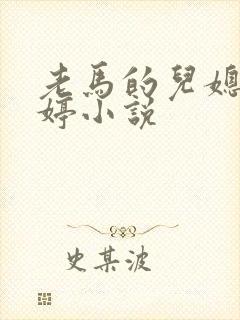 老馬的兒媳
婷小說
史某波